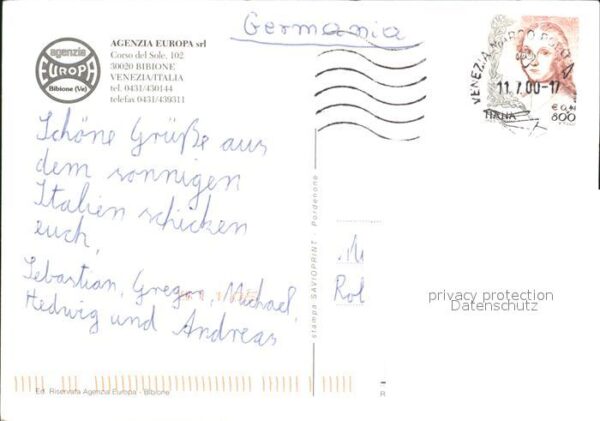 Germania
agenzia
EUROPA
Bibione (Ve)
AGENZIA EUROPA srl
Corso del Sole, 102
30020 BIBIONE
VENEZIA/ITALIA
tel. 0431/430144
telefax 0431/439311
VENEZIA MARCO POLO
11.7.00-17
ITALIA
€ 0,41
800
Schöne Grüße aus
dem sonnigen
Italien schicken
euch,
Sebastian, Gregor, Michael,
Hedwig und Andreas
stampa SAVIOPRINT - Pordenone
Rol
privacy protection
Datenschutz
Ed. Riservata Agenzia Europa - Bibione
R